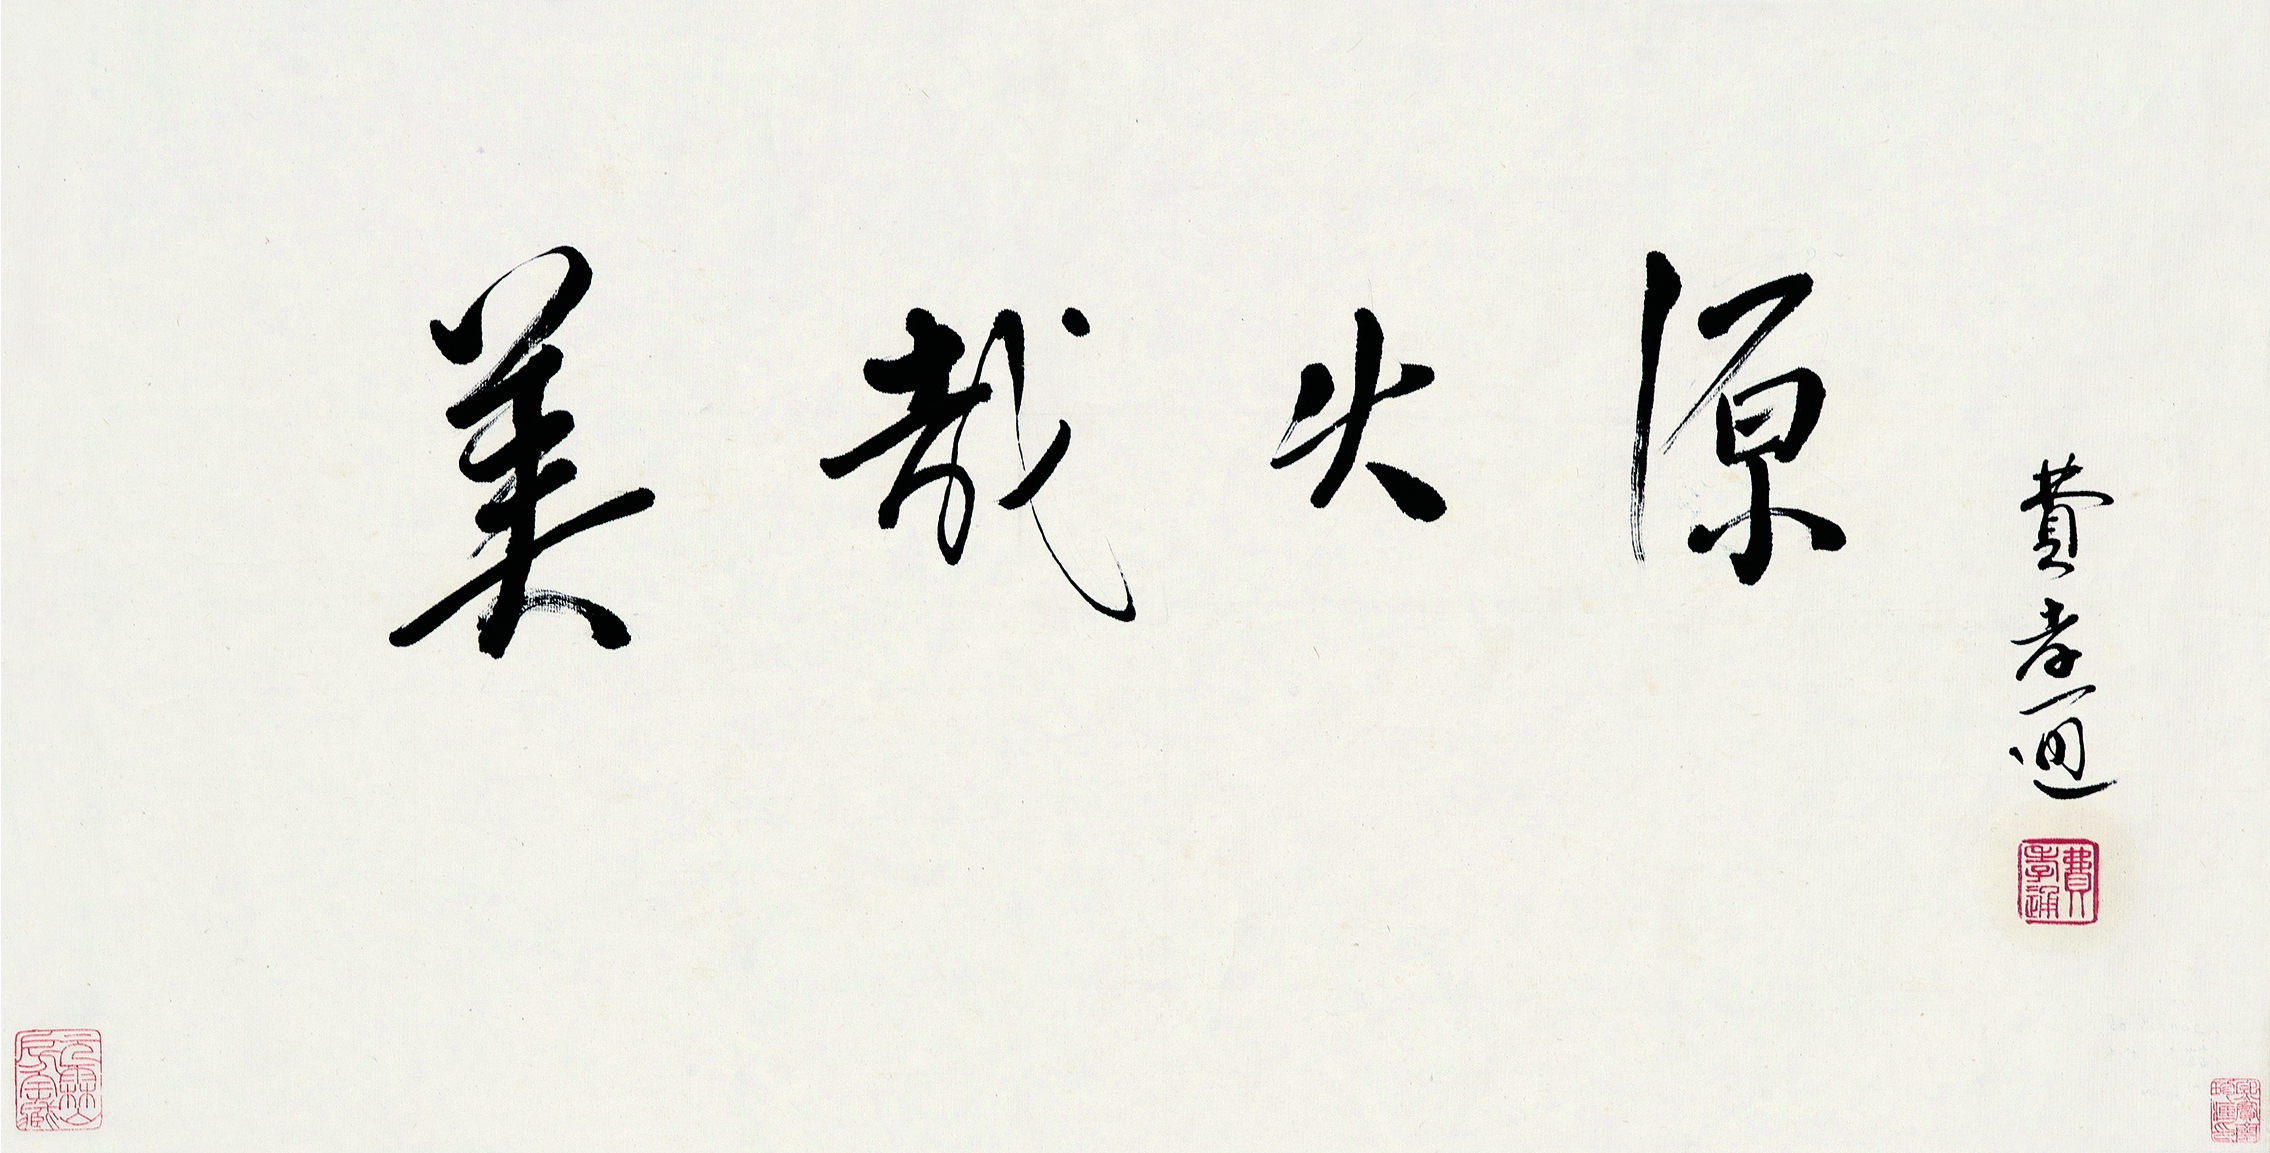 美哉火源
費孝通
費孝通